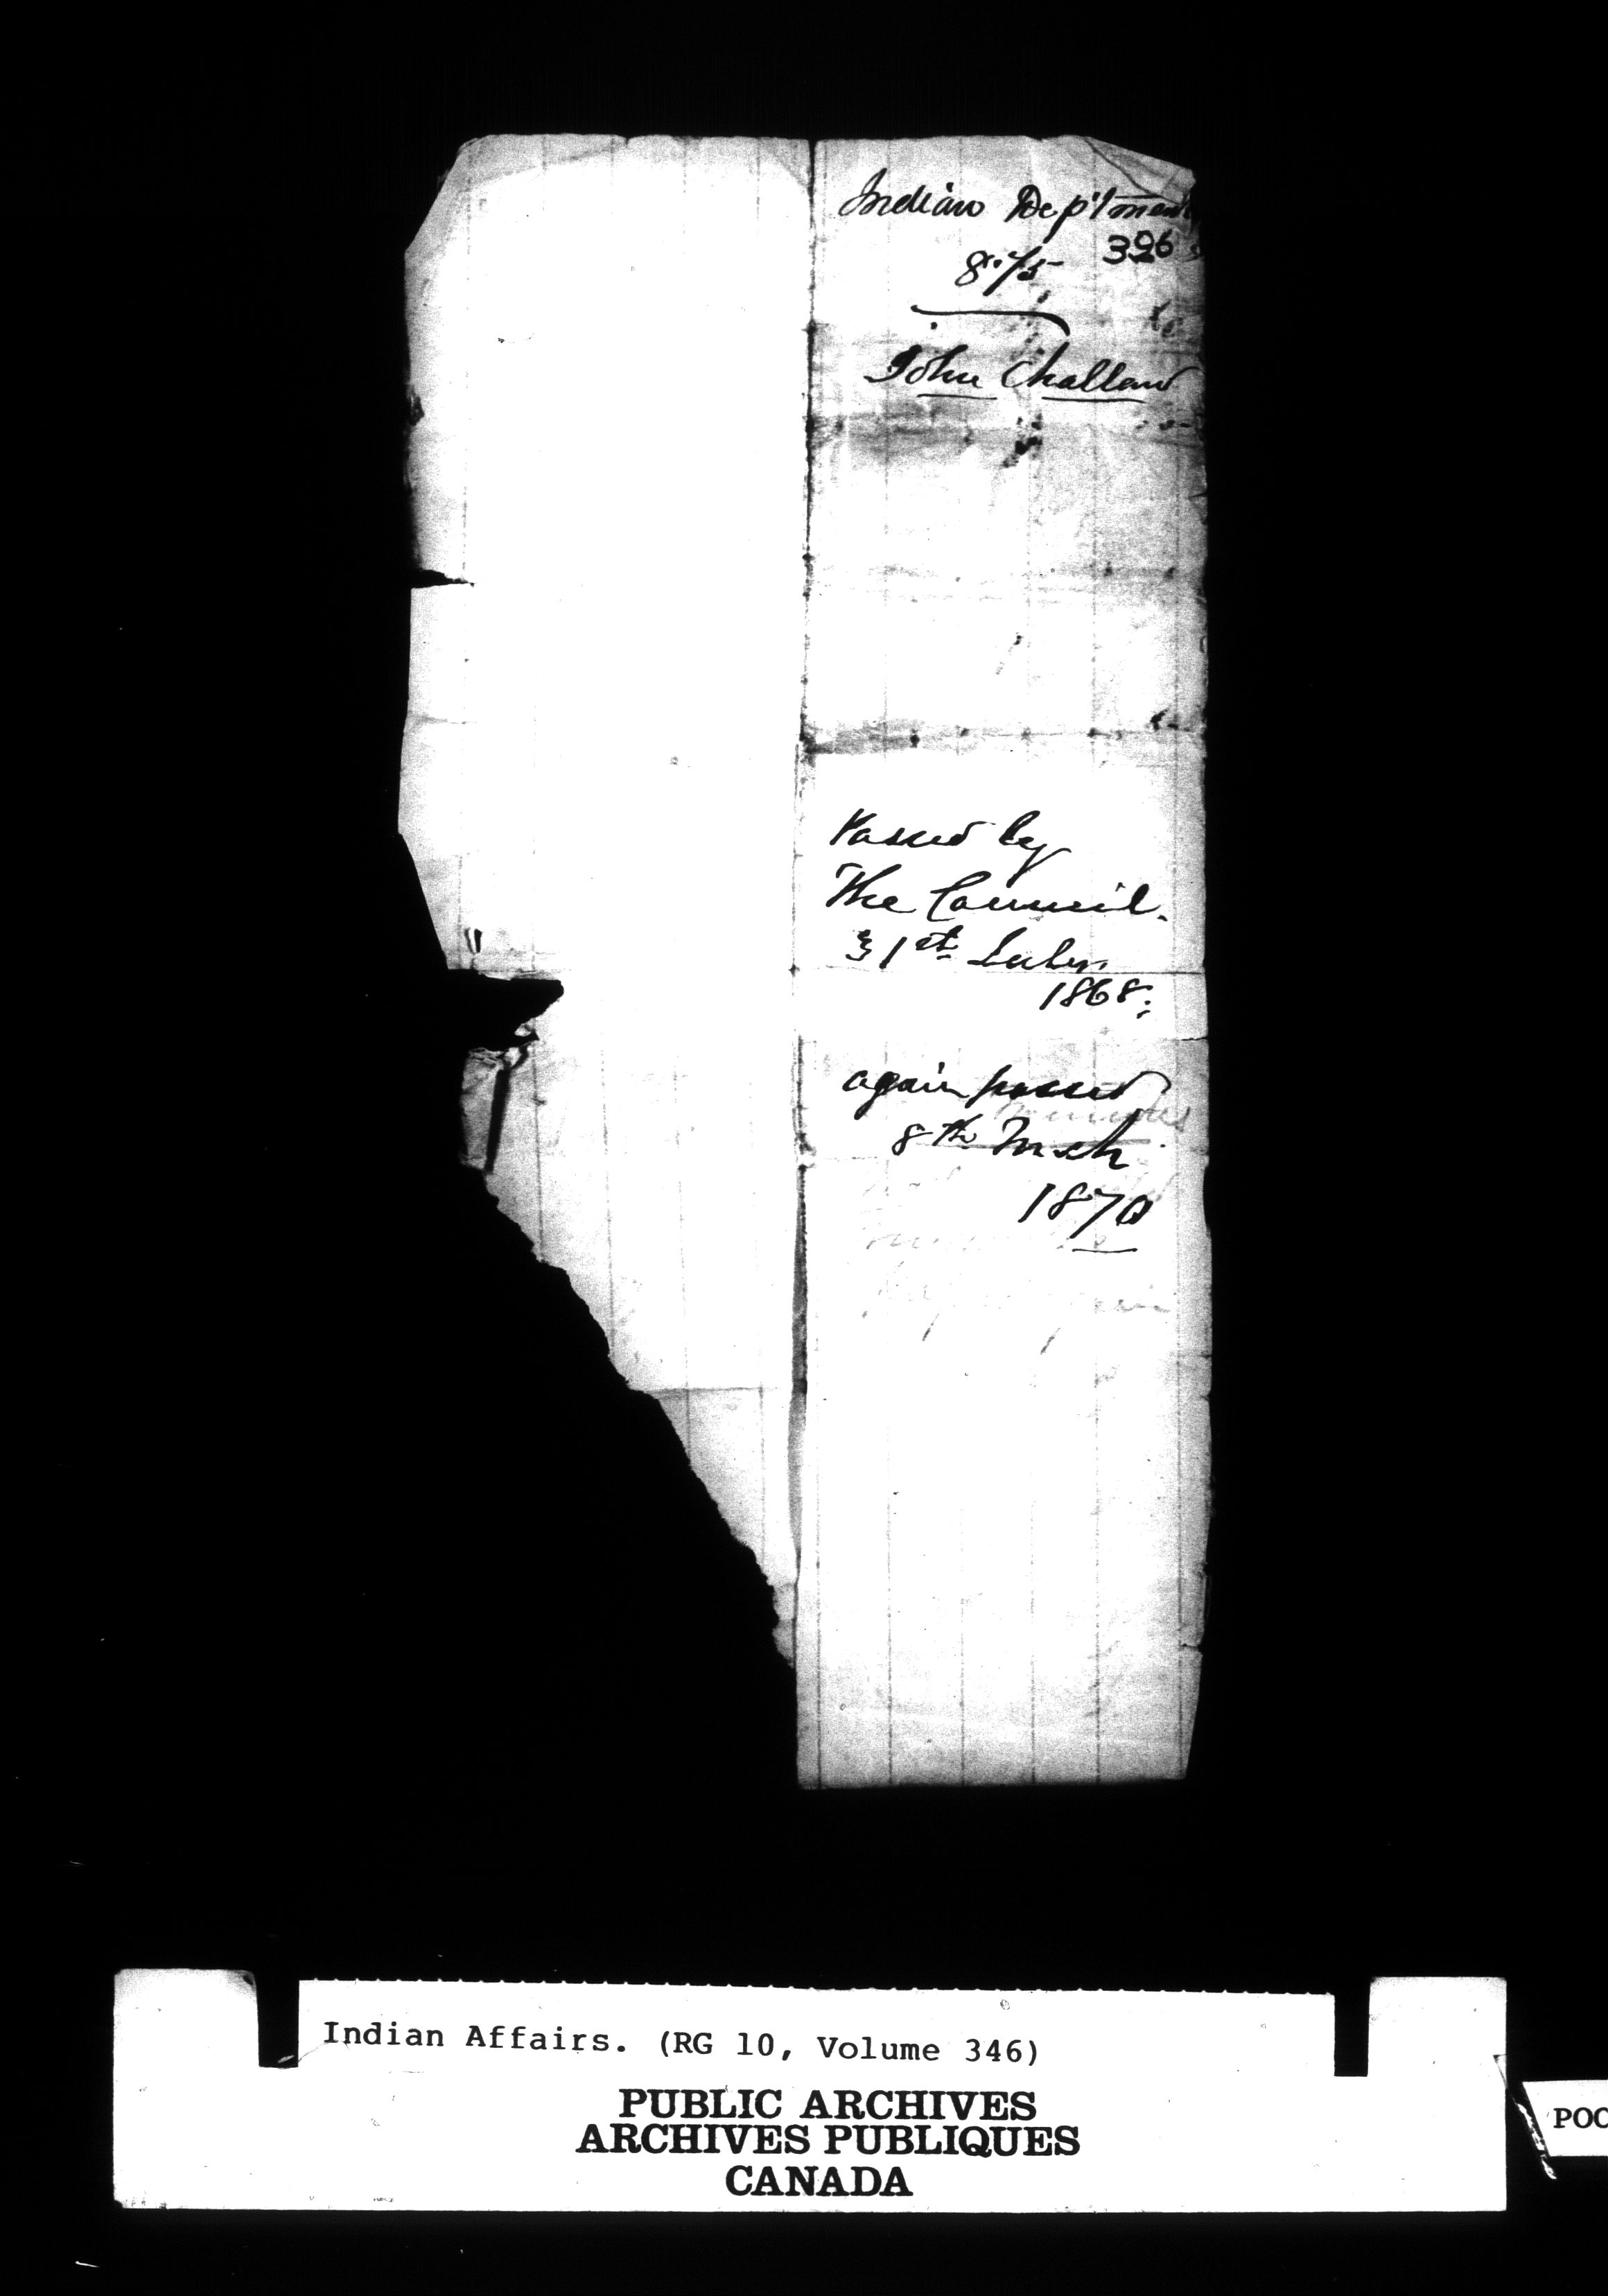 Indian Dep'tment
396
8.75
John Challand
Passed by
The Council.
31st
1868;
again passed
8th Mch
1870
Indian Affairs. (RG 10, Volume 346)
PUBLIC ARCHIVES
ARCHIVES PUBLIQUES
CANADA
POC